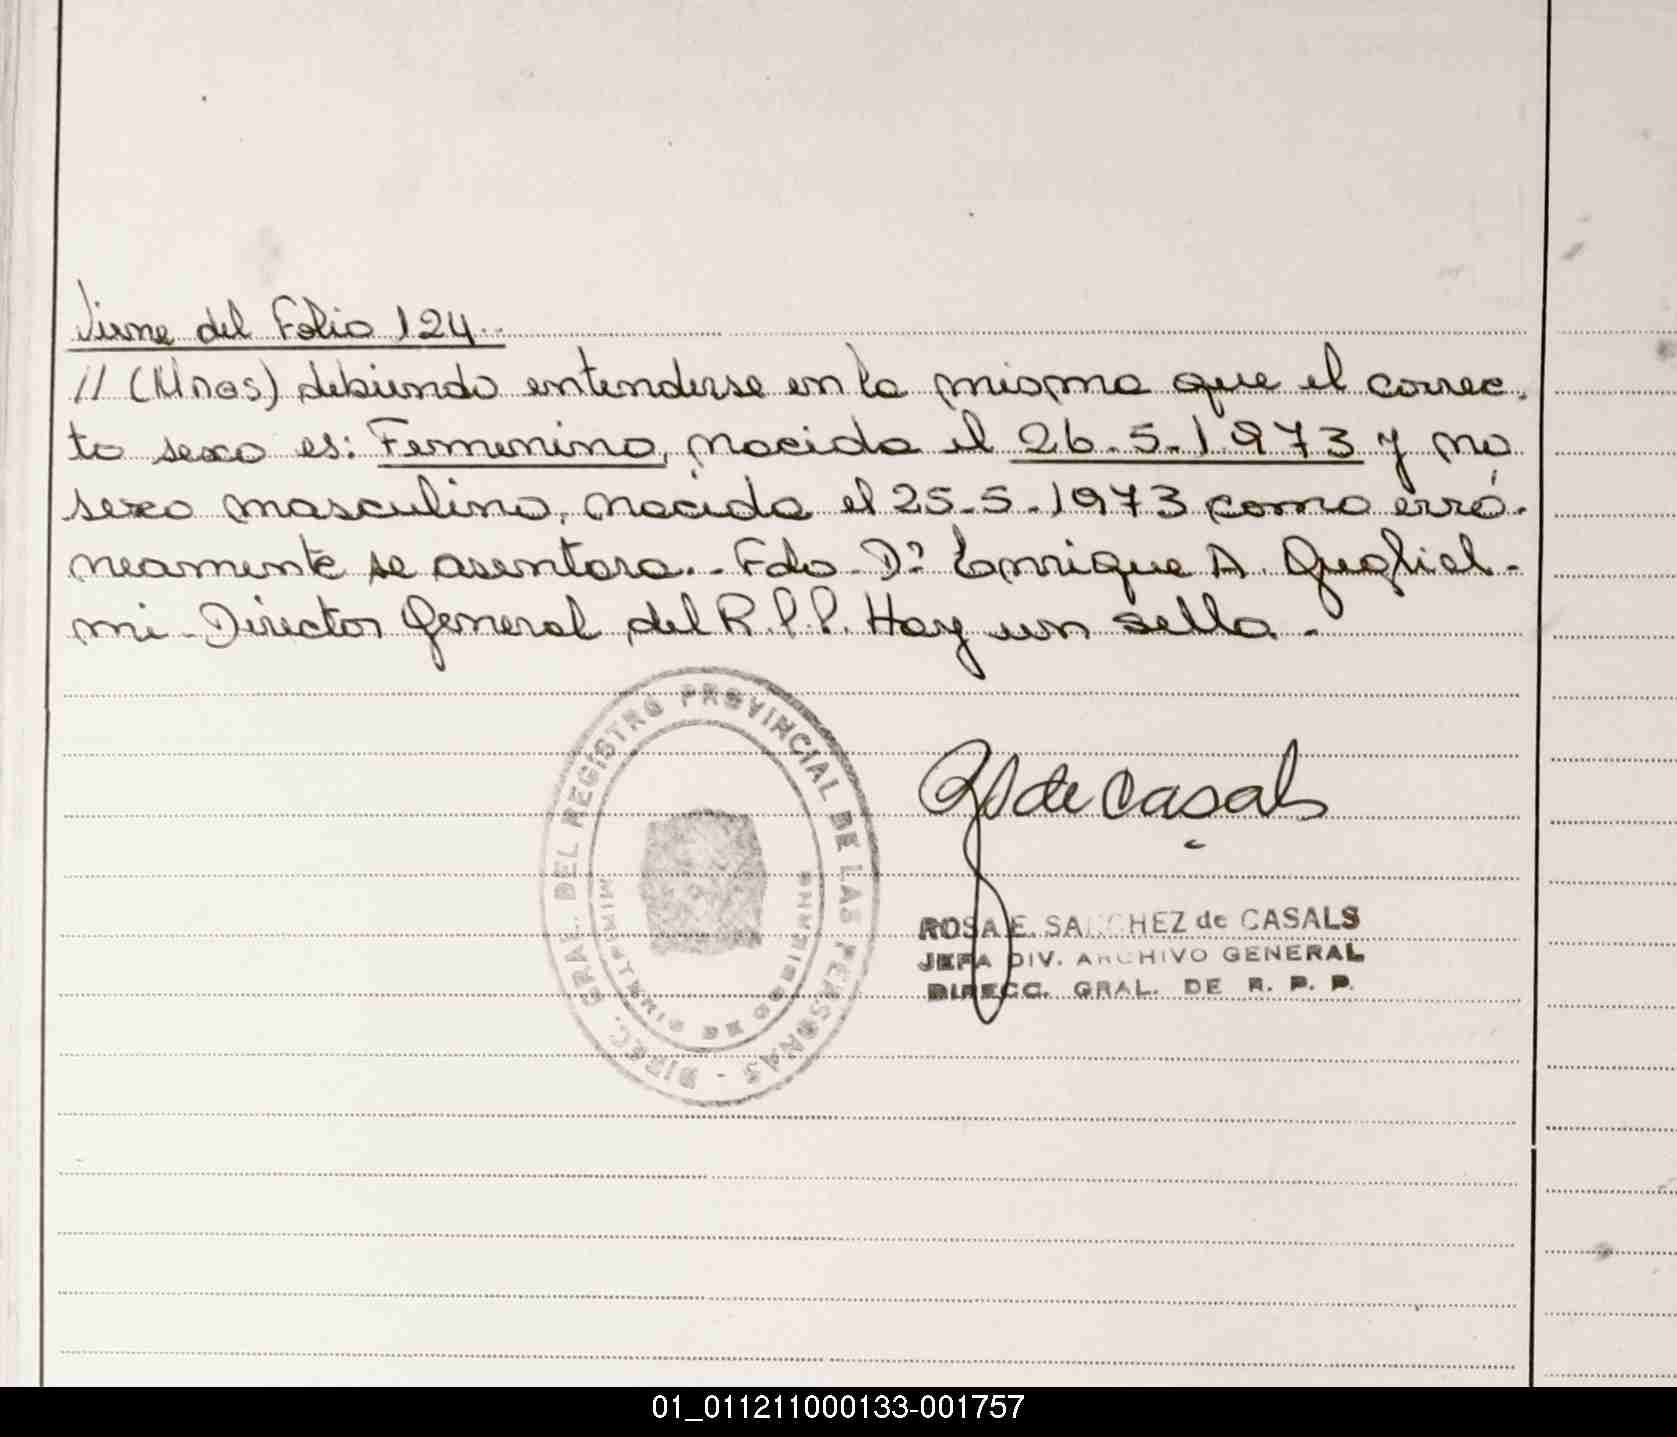 Viene del Folio 124..
// (Mnos) debiendo entenderse en la misma que el correc-
to sexo es: Femenino, nacida el 26.5.1973 y no
sexo masculino, nacido el 25.5.1973 como erró-
neamente se asentara.- Fdo. Dr. Enrique A. Gugliel-
mi - Director General del R.P.P. Hay un sello.-
DIREC. GRAL. DEL REGISTRO PROVINCIAL DE LAS PERSONAS -
MINISTERIO DE GOBIERNO
RS de Casals
ROSA E. SANCHEZ de CASALS
JEFA DIV. ARCHIVO GENERAL
DIRECC. GRAL. DE R. P. P.
01_011211000133-001757